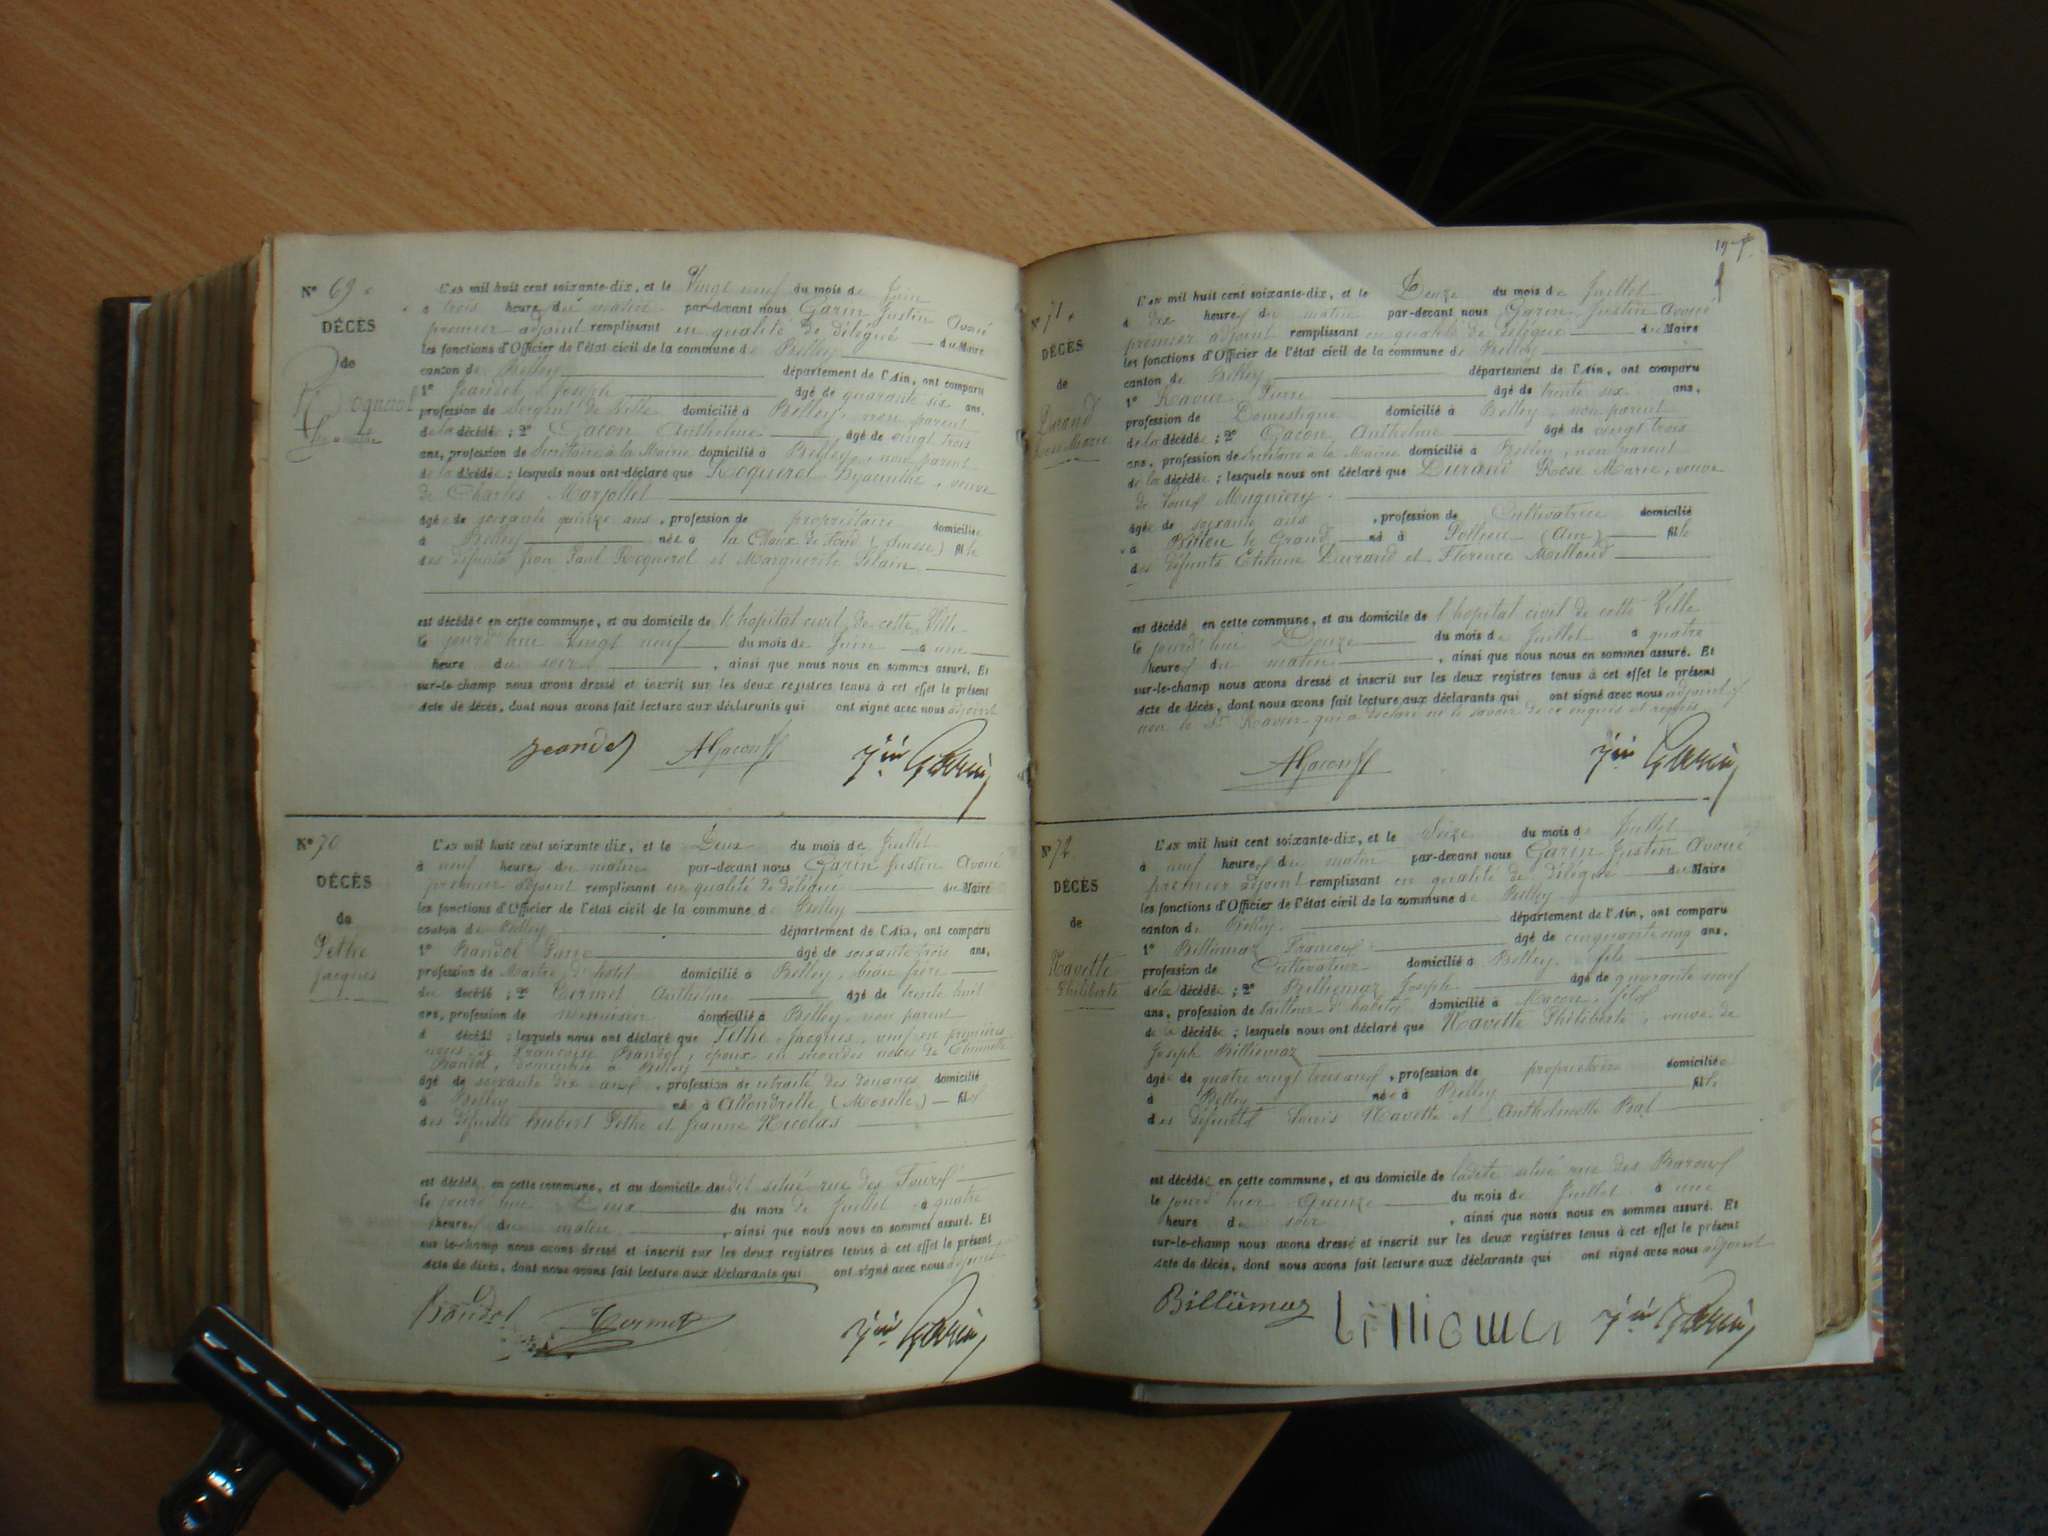 Nº 69
DÉCÈS
de
L'AN mil huit cent soixante-dix, et le Vingt neuf du mois de Juin
à trois heures du matin par-devant nous Garin Justin Avoué
premier adjoint remplissant en qualité de délégué du Maire
les fonctions d'Officier de l'état civil de la commune de Belley
canton de Belley département de l'Ain, ont comparu
1º Jeandet Joseph âgé de quarante six ans,
profession de Sergent de Ville domicilié à Belley, non parent
de la décédée ; 2º Gacon Anthelme âgé de vingt trois
ans, profession de Secrétaire à la Mairie domicilié à Belley, non parent
de la décédé ; lesquels nous ont déclaré que Roquerol Hyacinthe, veuve
de Charles Marjollet
âgée de soixante quinze ans, profession de propriétaire domiciliée
à Belley née à la Chaux de Fond (Suisse) fille
des défunts Jean Paul Roquerol et Marguerite
est décédée en cette commune, et au domicile de l'hopital civil de cette Ville
le jourd'hui vingt neuf du mois de Juin à une
heure du soir, ainsi que nous nous en sommes assuré. Et
sur-le-champ nous avons dressé et inscrit sur les deux registres tenus à cet effet le présent
acte de décès, dont nous avons fait lecture aux déclarants qui ont signé avec nous adjoint
Jeandet AGacon Jin Garin
Nº 70
DÉCÈS
de
Pethe
Jacques
L'AN mil huit cent soixante-dix, et le Deux du mois de Juillet
à neuf heures du matin par-devant nous Garin Justin Avoué
premier adjoint remplissant en qualité de délégué du Maire
les fonctions d'Officier de l'état civil de la commune de Belley
canton de Belley département de l'Ain, ont comparu
1º Bandol Pierre âgé de soixante trois ans,
profession de Maître d'hôtel domicilié à Belley, beau frère
du décédé ; 2º Cormet Anthelme âgé de trente huit
ans, profession de Menuisier domicilié à Belley, non parent
du décédé ; lesquels nous ont déclaré que Pethe Jacques, veuf en premières
noces de Françoise Bandol, époux en secondes noces de
Bandol, domicilié à Belley
âgé de soixante dix ans, profession de retraité des Douanes domicilié
à Belley né à Allondrelle (Moselle) fils
des défunts Hubert Pethe et Jeanne Nicolas
est décédé en cette commune, et au domicile dudit situé rue des Fours
le jourd'hui Deux du mois de Juillet à quatre
heures du matin, ainsi que nous nous en sommes assuré. Et
sur-le-champ nous avons dressé et inscrit sur les deux registres tenus à cet effet le présent
acte de décès, dont nous avons fait lecture aux déclarants qui ont signé avec nous adjoint
Bandol Cormet Jin Garin
19
Nº 71
DÉCÈS
de
Durand
Rose Marie
L'AN mil huit cent soixante-dix, et le Douze du mois de Juillet
à dix heures du matin par-devant nous Garin Justin Avoué
premier adjoint remplissant en qualité de délégué du Maire
les fonctions d'Officier de l'état civil de la commune de Belley
canton de Belley département de l'Ain, ont comparu
1º Ravier Pierre âgé de trente six ans,
profession de Domestique domicilié à Belley, non parent
de la décédée ; 2º Gacon Anthelme âgé de vingt trois
ans, profession de Secrétaire à la Mairie domicilié à Belley, non parent
de la décédée ; lesquels nous ont déclaré que Durand Rose Marie, veuve
de Louis Mugniery
âgée de soixante ans, profession de Cultivatrice domicilié
à Billieu le Grand né à Pollieu (Ain) fille
des défunts Etienne Durand et Florence Milloud
est décédé en cette commune, et au domicile de l'hopital civil de cette Ville
le jourd'hui Douze du mois de Juillet à quatre
heures du matin, ainsi que nous nous en sommes assuré. Et
sur-le-champ nous avons dressé et inscrit sur les deux registres tenus à cet effet le présent
acte de décès, dont nous avons fait lecture aux déclarants qui ont signé avec nous adjoint
non le Sr Ravier qui a déclaré ne le savoir de ce enquis et requis
AGacon Jin Garin
Nº 72
DÉCÈS
de
Navette
Philiberte
L'AN mil huit cent soixante-dix, et le Seize du mois de Juillet
à neuf heures du matin par-devant nous Garin Justin Avoué
premier adjoint remplissant en qualité de délégué du Maire
les fonctions d'Officier de l'état civil de la commune de Belley
canton de Belley département de l'Ain, ont comparu
1º Billiemaz François âgé de cinquante cinq ans,
profession de Cultivateur domicilié à Belley, fils
de la décédée ; 2º Billiemaz Joseph âgé de quarante neuf
ans, profession de tailleur d'habits domicilié à Macon, fils
de la décédée ; lesquels nous ont déclaré que Navette Philiberte, veuve de
Joseph Billiemaz
âgée de quatre vingt trois ans, profession de propriétaire domiciliée
à Belley née à Belley fille
des défunts Louis Navette et Anthelmette Bal
est décédée en cette commune, et au domicile de ladite situé rue des Barons
le jourd'hier Quinze du mois de Juillet à une
heure du soir, ainsi que nous nous en sommes assuré. Et
sur-le-champ nous avons dressé et inscrit sur les deux registres tenus à cet effet le présent
acte de décès, dont nous avons fait lecture aux déclarants qui ont signé avec nous adjoint
Billiemaz billiemaz Jin Garin